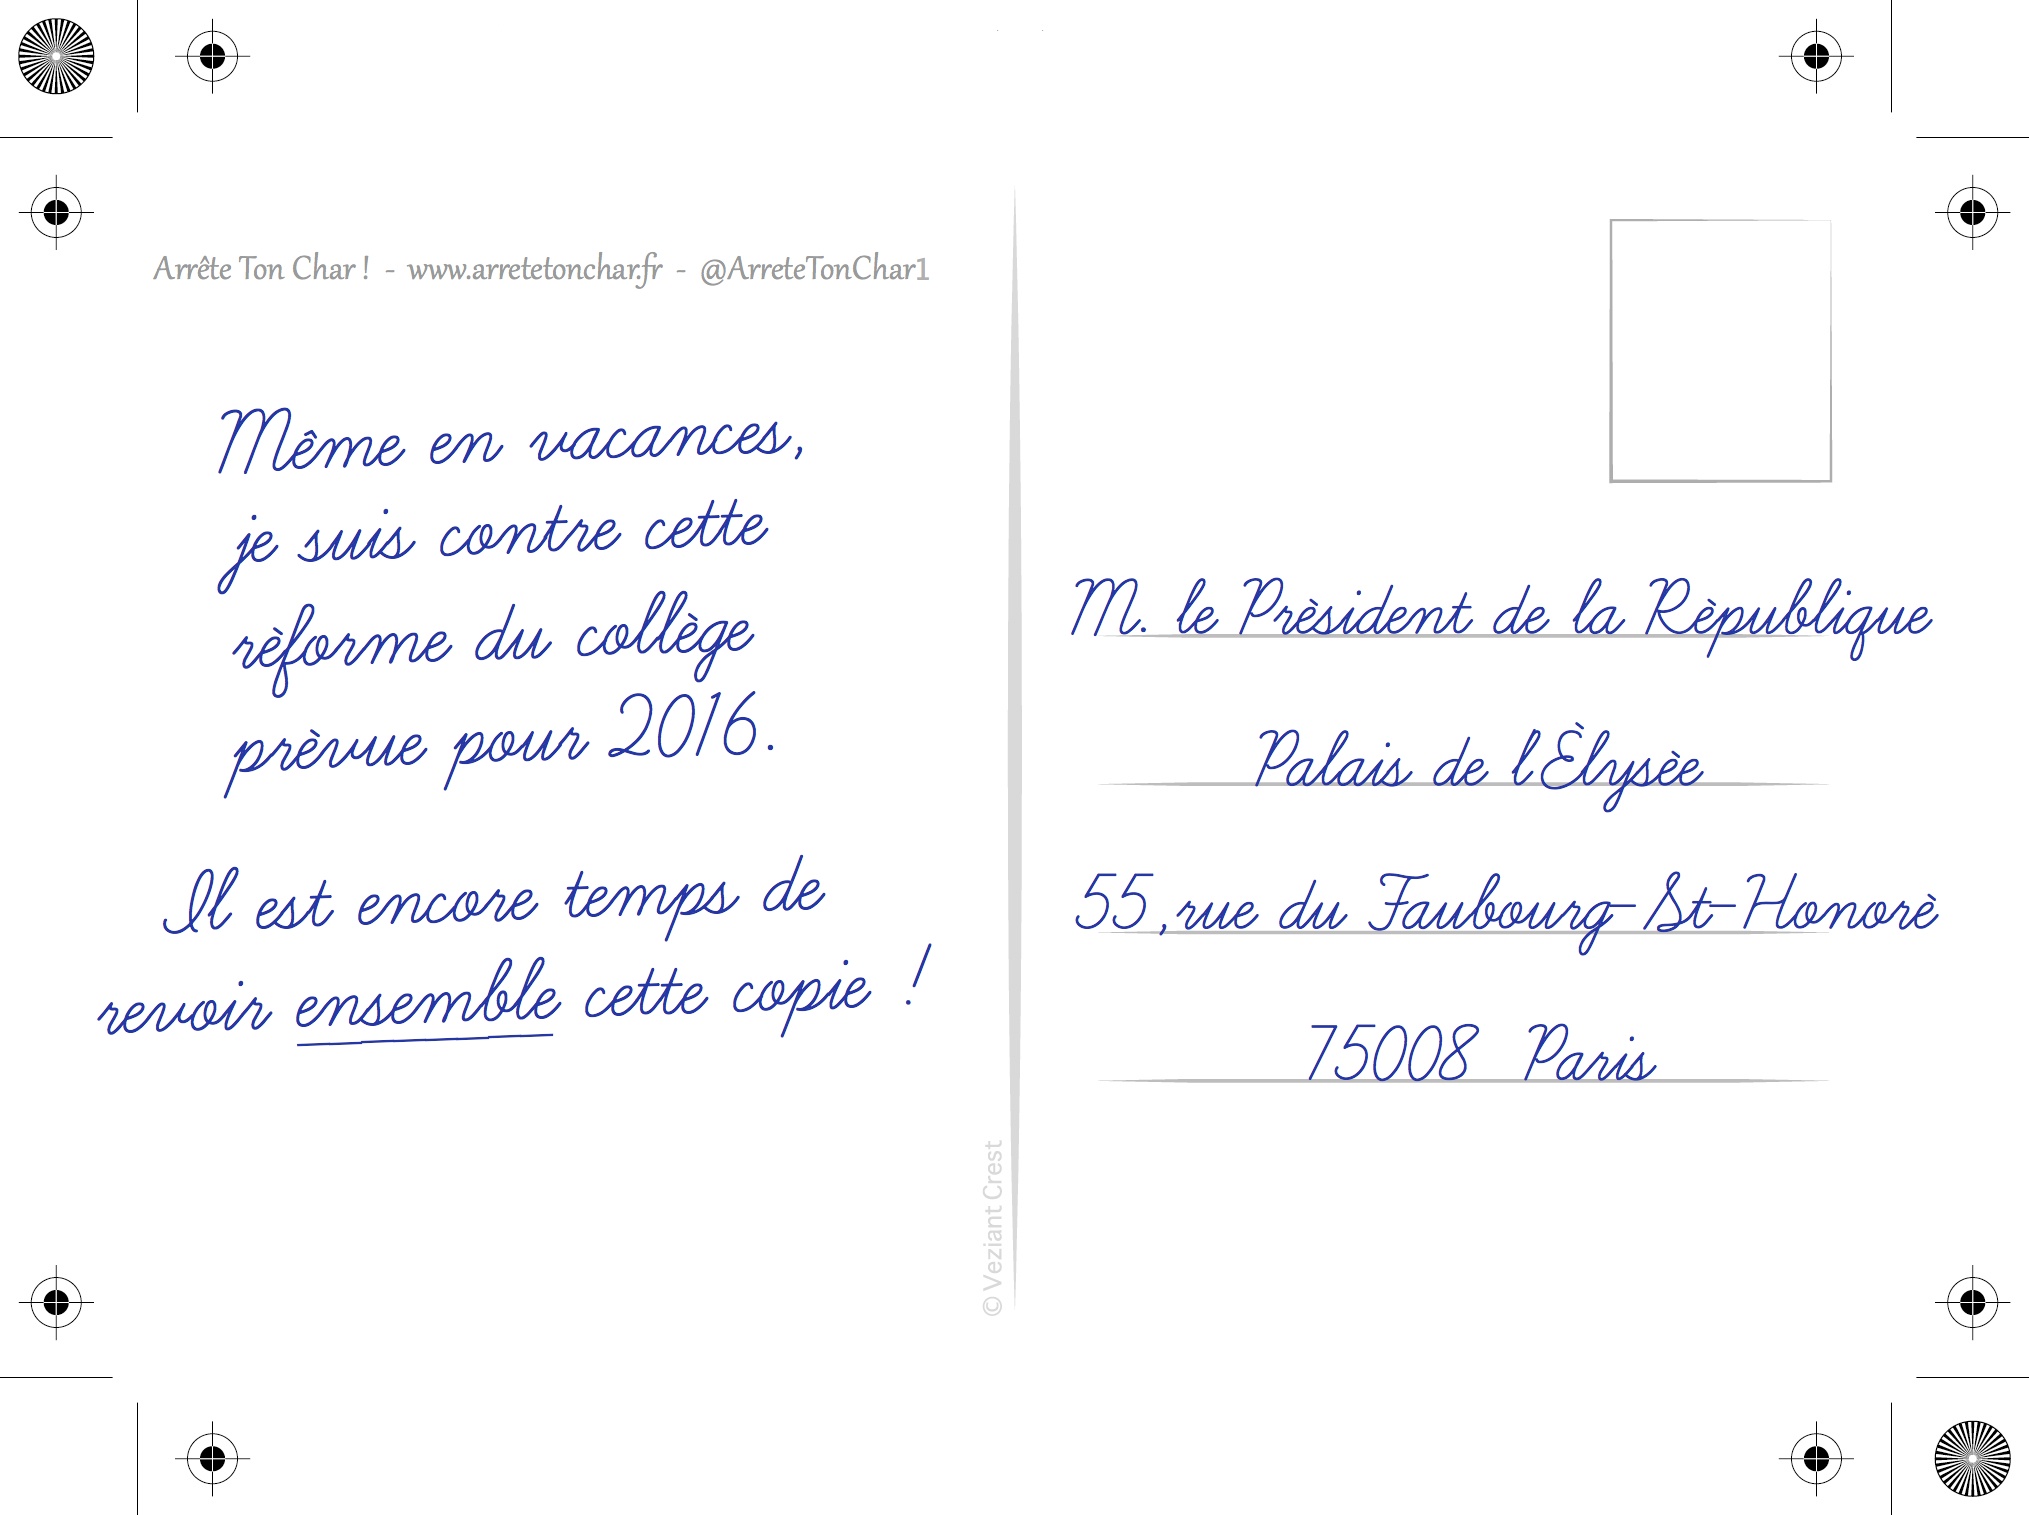 Arrête Ton Char ! - www.arretetonchar.fr - @ArreteTonChar1
Même en vacances,
je suis contre cette
rèforme du collège
prèvue pour 2016.
Il est encore temps de
revoir ensemble cette copie !
© Veziant Crest
M. le Prèsident de la Rèpublique
Palais de l'Èlysèe
55, rue du Faubourg-St-Honorè
75008 Paris